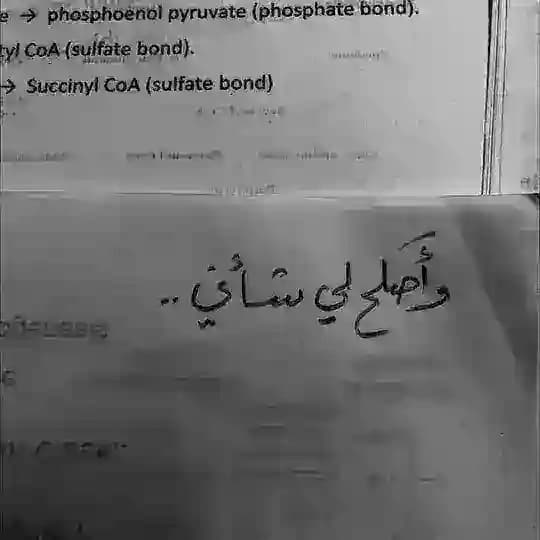 e → phosphoenol pyruvate (phosphate bond).
tyl CoA (sulfate bond).
→ Succinyl CoA (sulfate bond)
وأَصلح لي شأني ..